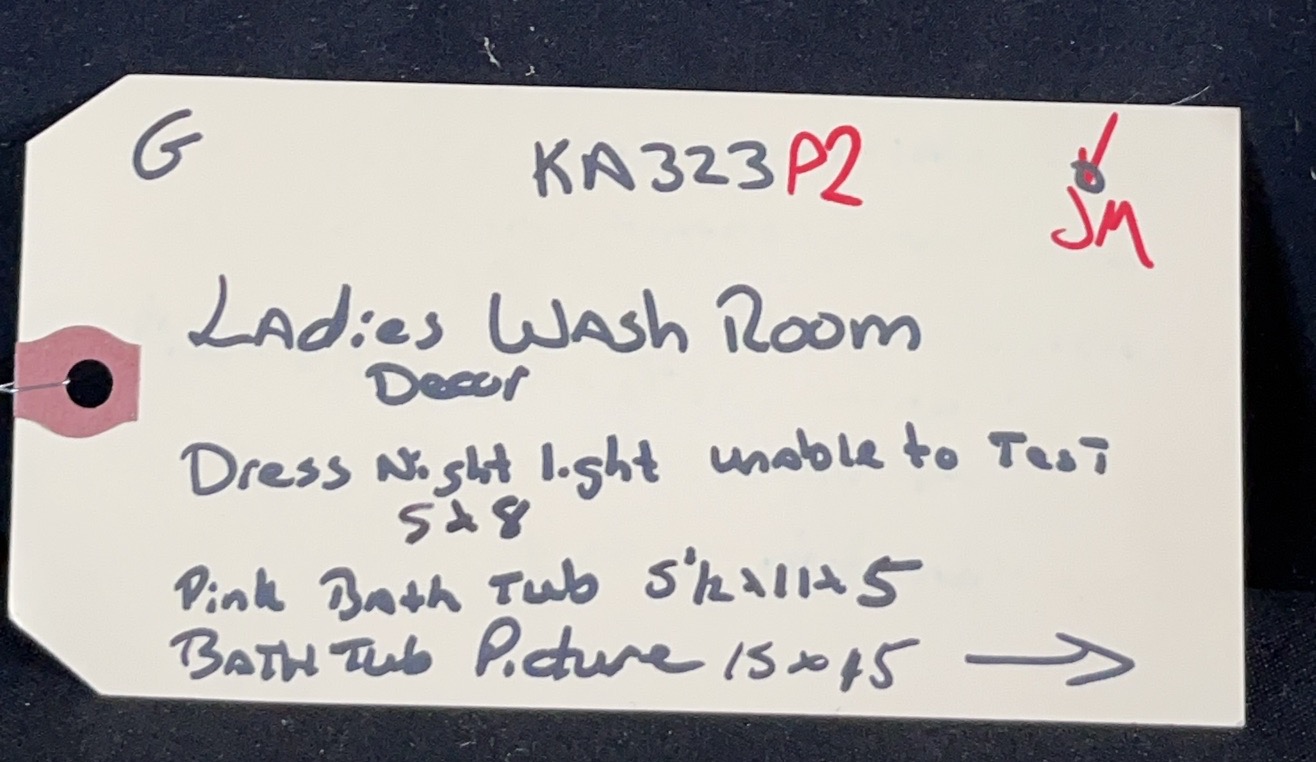 G KA323P2
JM
Ladies Wash Room
Decor
Dress Night light unable to Test
5x8
Pink Bath Tub 5 1/2 x 11 x 5
BATH Tub Picture 15 x 15 →